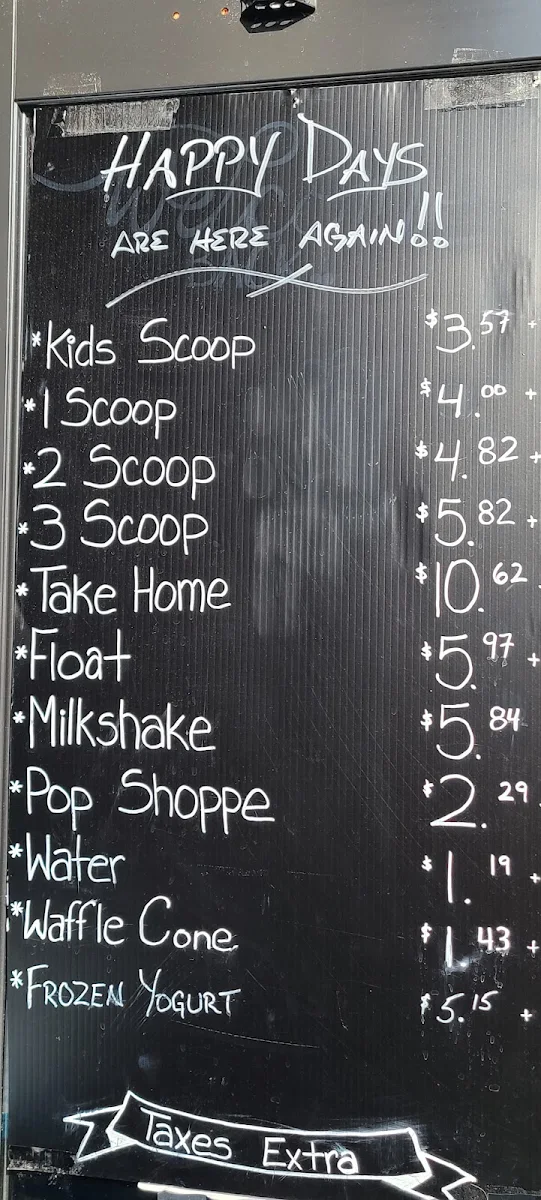 HAPPY DAYS
ARE HERE AGAIN!!
*Kids Scoop $3.57 +
*1 Scoop $4.00 +
*2 Scoop $4.82 +
*3 Scoop $5.82 +
*Take Home $10.62
*Float $5.97 +
*Milkshake $5.84
*Pop Shoppe $2.29
*Water $1.19 +
*Waffle Cone $1.43 +
*FROZEN YOGURT $5.15 +
Taxes Extra